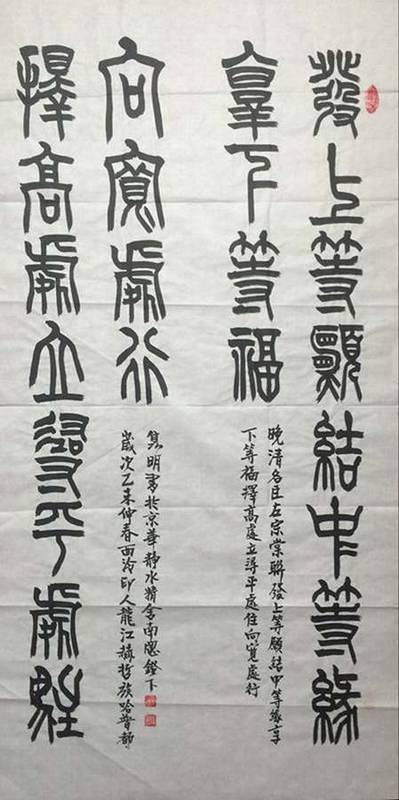 發上等願結中等緣
享下等福
晚清名臣左宗棠聯發上等願結中等緣享
下等福擇高處立尋平處住向寬處行
擇高處立尋平處駐
向寬處行
歲次乙未仲春西泠印人龍江赫哲族哈普都
雋明書於京華靜水精舍南窗鐙下